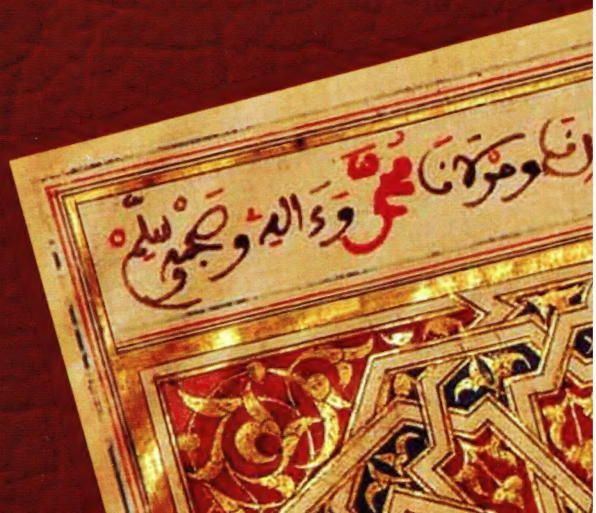 ومَوْلَانَا مُحَمَّدٍ وَءَالِهِ وصَحْبِهِ وسَلِّمْ